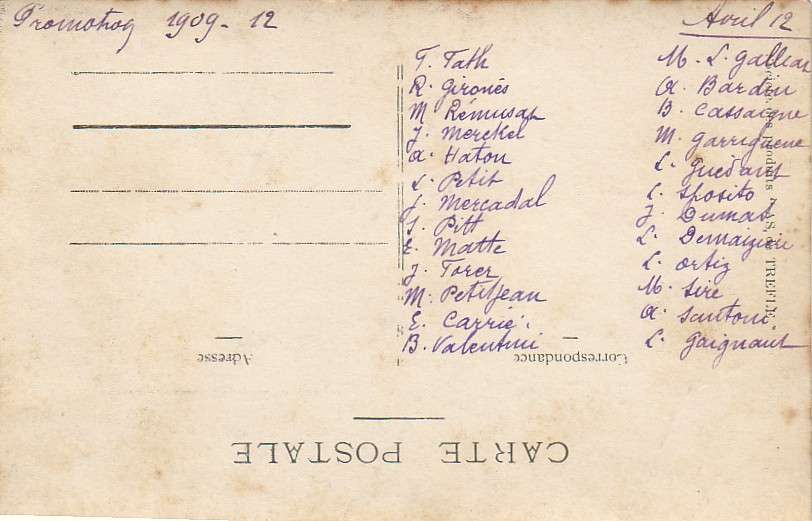 Promotion 1909-12
Avril 12
T. Tath
R. Gironés
M. Rémusat
J. Merckel
A. Haton
L. Petit
J. Mercadal
S. Pitt
E. Matte
J. Torer
M. Petitjean
E. Carrié
B. Valentini
M. L. Galléan
A. Bardin
B. Cassaigne
M. Garriguene
L. Guédant
L. Sposito
J. Dumas
L. Demaizière
L. Ortiz
M. Sire
A. Santoni
L. Gaignaut
AS. DE TREFLE.
Adresse
Correspondance
CARTE POSTALE